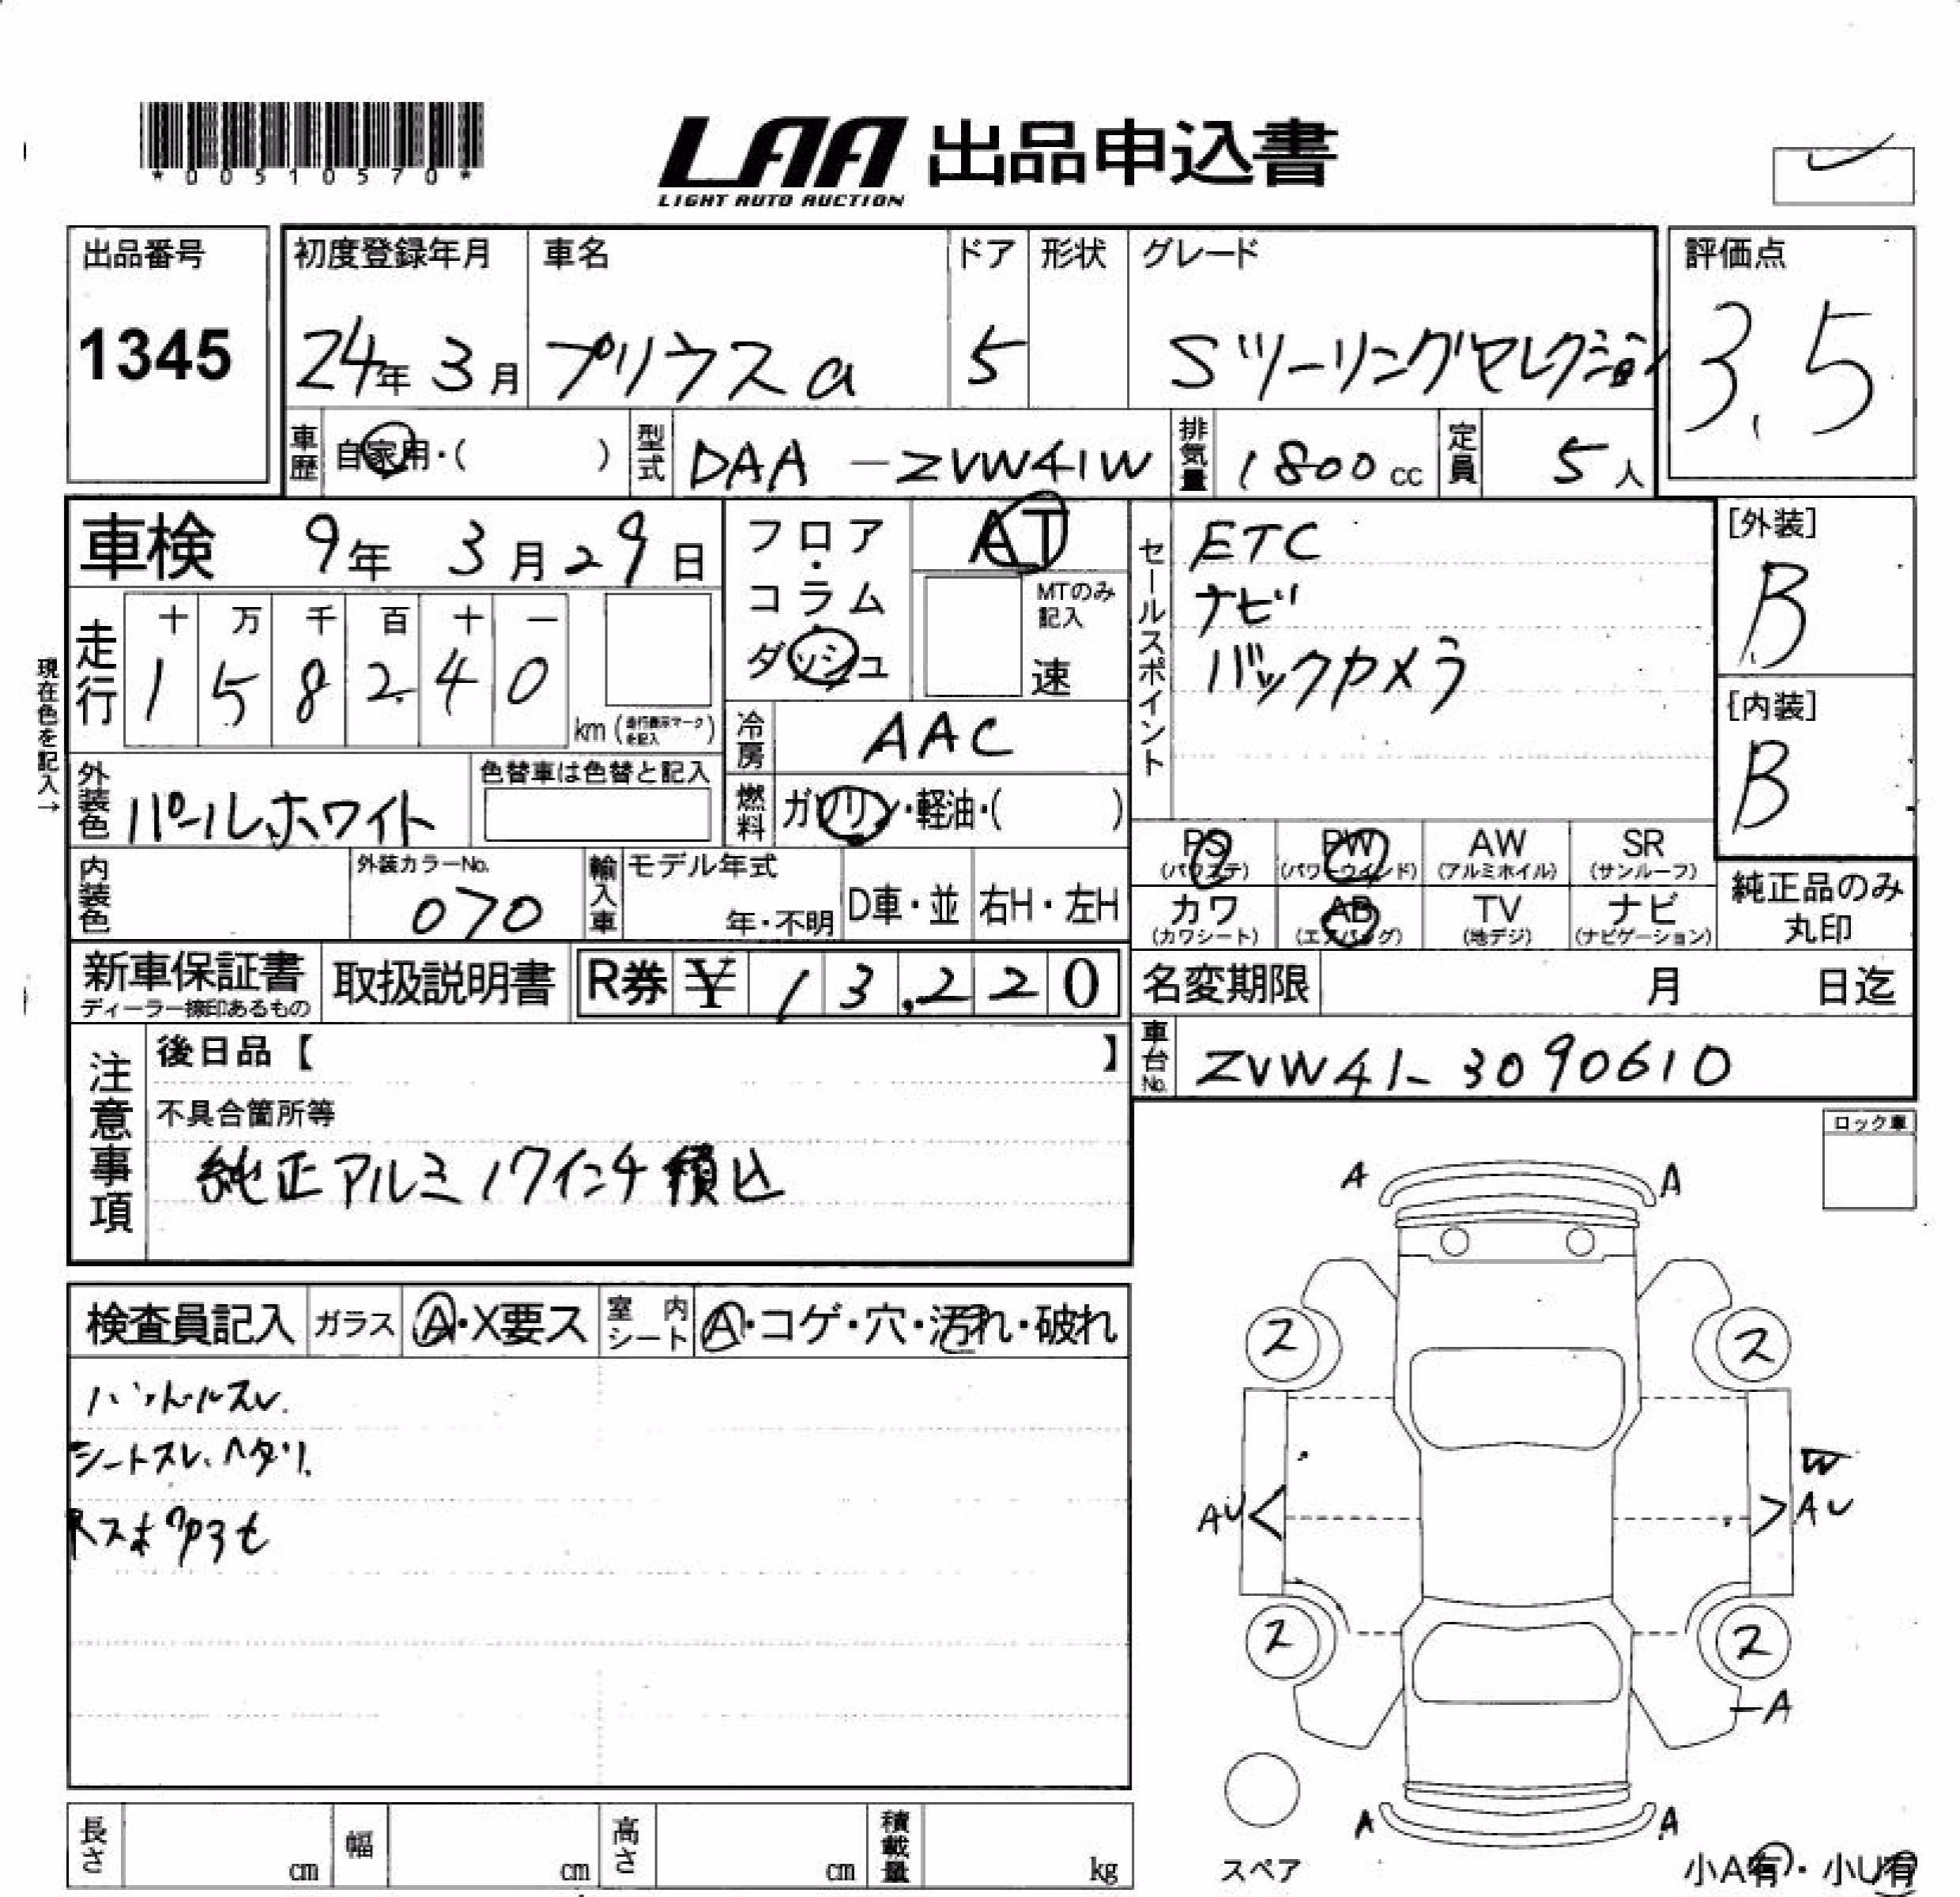 *00510570*
LAA 出品申込書
LIGHT AUTO AUCTION
出品番号
1345
初度登録年月
24年 3月
車名
プリウスα
ドア
5
形状
グレード
Sツーリングセレクション
評価点
3.5
車歴
自家用・( )
型式
DAA -ZVW41W
排気量
1800cc
定員
5人
車検 9年 3月29日
走行
十 万 千 百 十 一
1 5 8 2 4 0
km(走行表示マークを記入)
現在色を記入→
外装色
パールホワイト
色替車は色替と記入
内装色
外装カラーNo.
070
フロア・コラム・ダッシュ
AT
MTのみ記入
速
冷房
AAC
燃料
ガソリン・軽油・( )
輸入車
モデル年式
年・不明
D車・並
右H・左H
セールスポイント
ETC
ナビ
バックカメラ
[外装]
B
[内装]
B
PS
(パワステ)
PW
(パワーウインド)
AW
(アルミホイル)
SR
(サンルーフ)
カワ
(カワシート)
AB
(エアバッグ)
TV
(地デジ)
ナビ
(ナビゲーション)
純正品のみ丸印
新車保証書
ディーラー捺印あるもの
取扱説明書
R券 ¥ 13,220
名変期限 月 日迄
車台No.
ZVW41-3090610
注意事項
後日品【 】
不具合箇所等
純正アルミ17インチ積込
ロック車
検査員記入
ガラス
A・X要ス
室内シート
A・コゲ・穴・汚れ・破れ
ハンドルスレ.
シートスレ、ヘタリ.
A A
ス ス
W
AU AU
ス ス
A
A A
スペア
小A有・小U有
長さ cm
幅 cm
高さ cm
積載量 kg